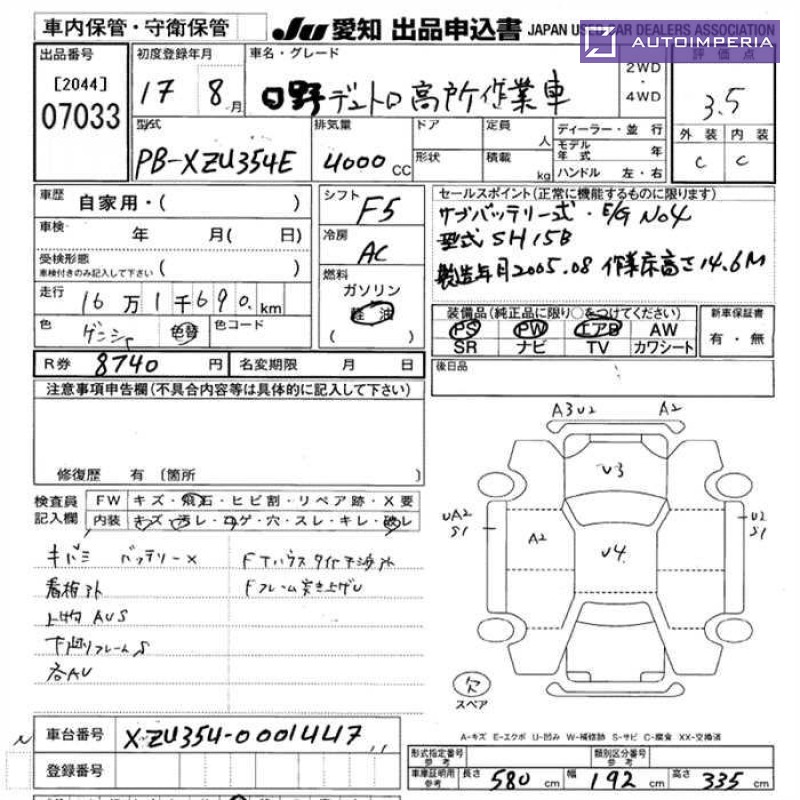 車内保管・守衛保管 JU 愛知 出品申込書 JAPAN USED CAR DEALERS ASSOCIATION
AUTOIMPERIA
出品番号 初度登録年月 車名・グレード 評価点
[2044] 17 8月 日野デュトロ高所作業車 2WD・4WD 3.5
07033
型式 排気量 ドア 定員 人 ディーラー・並行 外装 内装
PB-XZU354E 4000 CC 形状 積載 kg モデル年式 年 C C
ハンドル 左・右
車歴 自家用・( ) シフト F5 セールスポイント(正常に機能するものに限ります)
車検 年 月( 日) 冷房 AC サブバッテリー式・E/G No4
型式 SH15B
受検形態 車検付きのみ記入して下さい ( ) 燃料 製造年月2005.08 作業床高さ14.6M
走行 16万1千690km ガソリン 軽油 ( )
装備品(純正品に限り○をつけてください) 新車保証書
色 色替 色コード PS PW エアB AW 有・無
SR ナビ TV カワシート
R券 8740円 名変期限 月 日 後日品
注意事項申告欄(不具合内容等は具体的に記入して下さい)
修復歴 有 [箇所 ]
検査員記入欄 FW キズ・飛石・ヒビ割・リペア跡・X要
内装 キズ・汚レ・コゲ・穴・スレ・キレ・破レ
キバミ バッテリーX
看板アト Fフレーム突き上げU
上物AUS
下回りフレームS
各AU
A3U2 A2
U3
UA2 S1 A2 U4 U2 S1
欠
スペア
A-キズ E-エクボ U-凹み W-補修跡 S-サビ C-腐食 XX-交換済
車台番号 XZU354-0001447
登録番号
形式指定番号 参考 類別区分番号 参考
車庫証明用 参考 長さ 580cm 幅 192cm 高さ 335cm